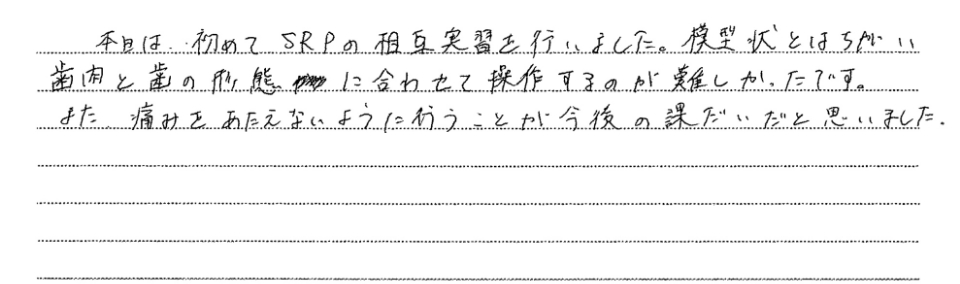 本日は、初めてSRPの相互実習を行いました。模型状とはちがい
歯肉と歯の形態に合わせて操作するのが難しかったです。
また、痛みをあたえないように行うことが今後の課だいだと思いました。